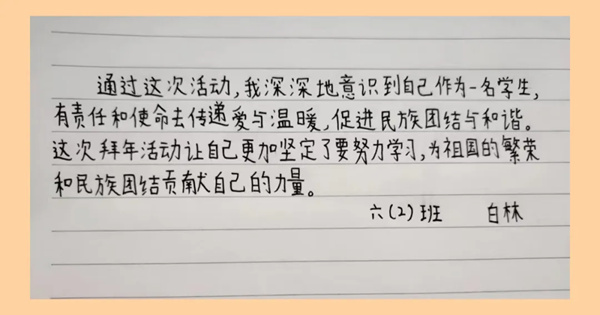 通过这次活动,我深深地意识到自己作为一名学生,
有责任和使命去传递爱与温暖,促进民族团结与和谐。
这次拜年活动让自己更加坚定了要努力学习,为祖国的繁荣
和民族团结贡献自己的力量。
六(2)班 白林